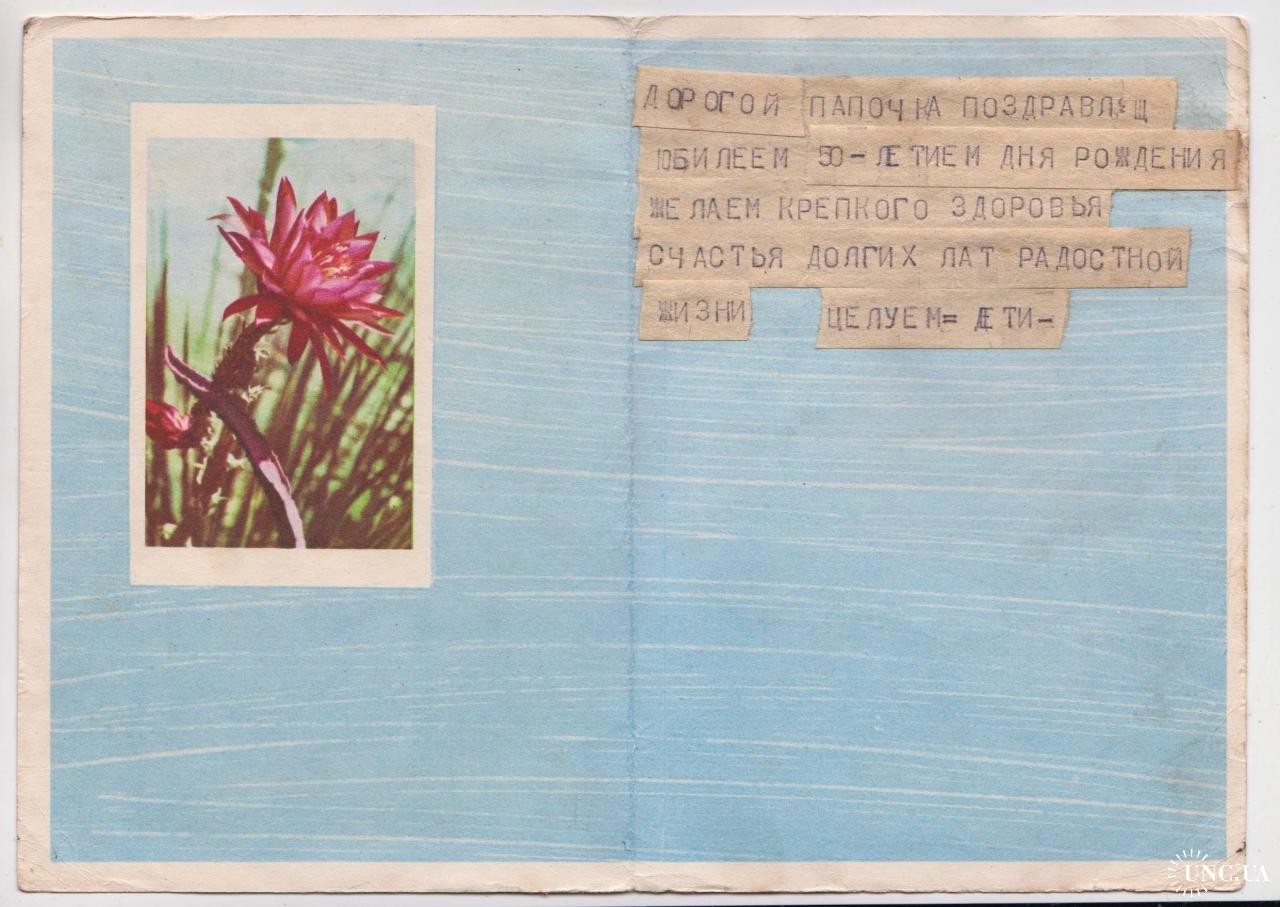 ДОРОГОЙ ПАПОЧКА
ЮБИЛЕЕМ 50-ЛЕТИЕМ ДНЯ РОЖДЕНИЯ
ЖЕЛАЕМ КРЕПКОГО ЗДОРОВЬЯ
СЧАСТЬЯ ДОЛГИХ ЛАТ РАДОСТНОЙ
ЖИЗНИ ЦЕЛУЕМ= ДЕТИ-
UNC.UA